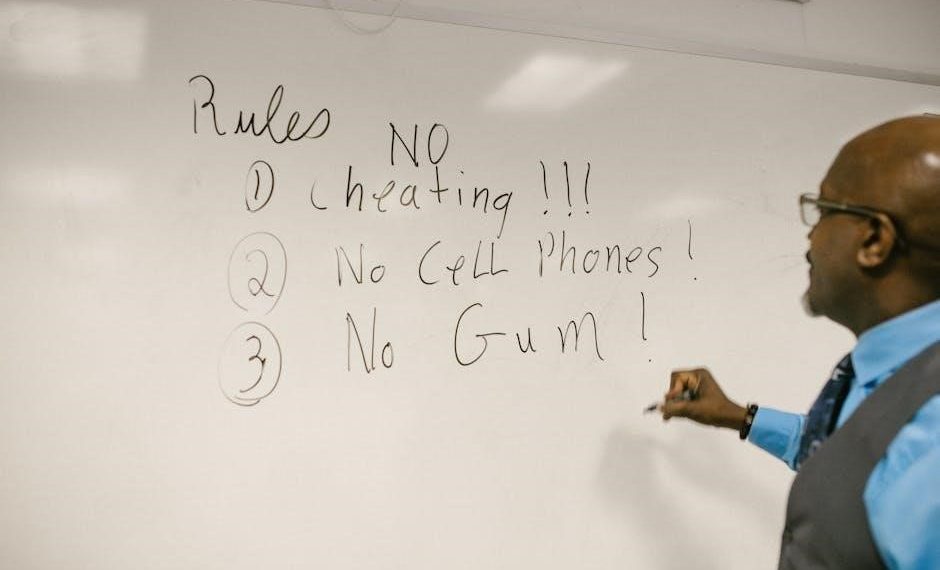 Rules
NO
① Cheating !!!
② No Cell Phones !
③ No Gum !